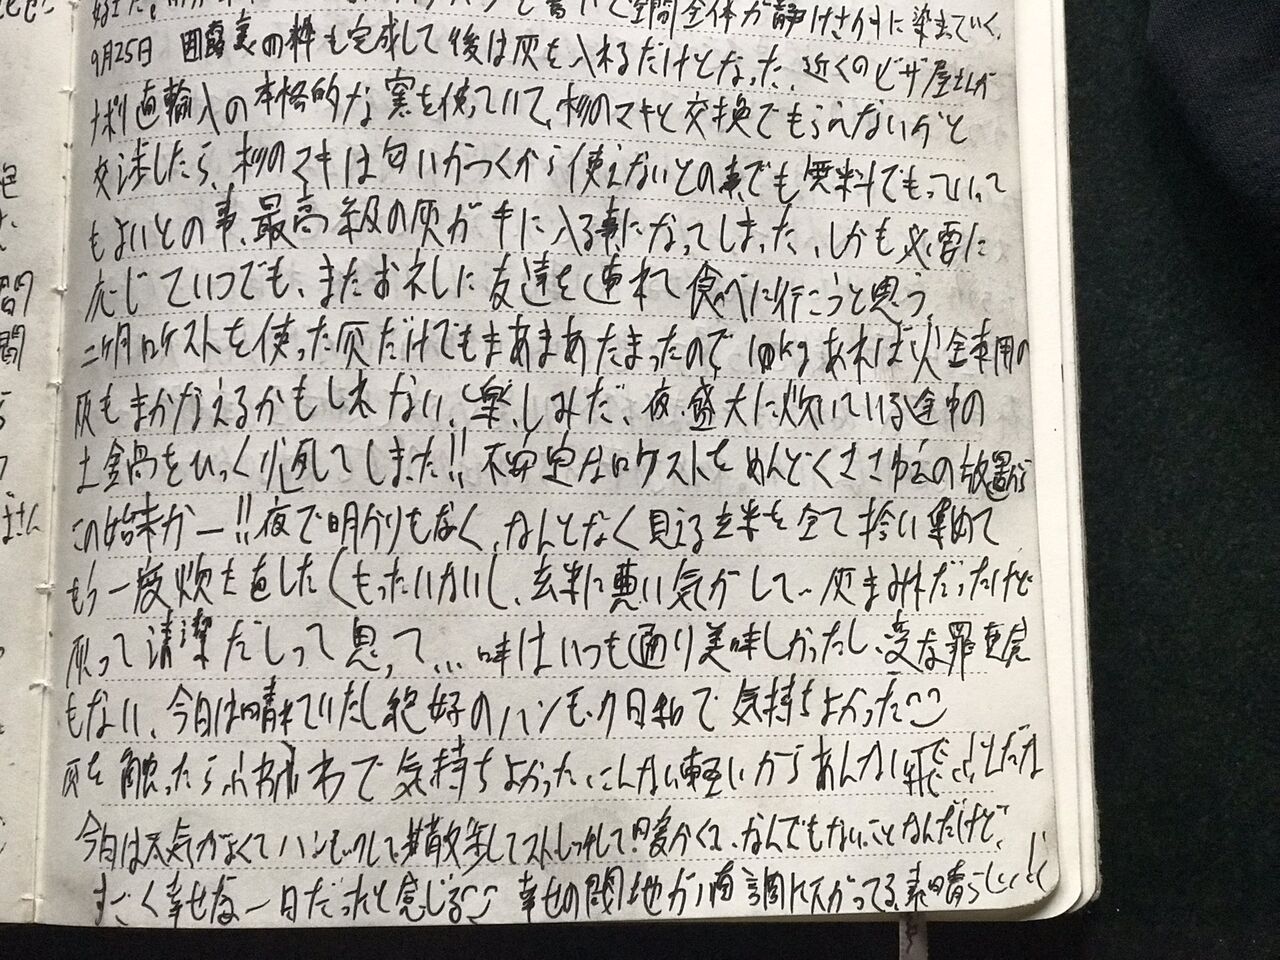 空間全体が静けさだけに染まっていく。
9月25日 囲露裏の枠も完成して後は灰を入れるだけとなった、近くのピザ屋さんが
ナポリ直輸入の本格的な窯を使っていて、杉のマキと交換でもらえないかと
交渉したら、杉のマキは匂いがつくから使えないとの事でも無料でもっていって
もよいとの事、最高級の灰が手に入る事になってしまった、しかも必要に
応じていつでも、またお礼しに友達を連れて食べに行こうと思う。
二ヶ月ロケストを使った灰だけでもまあまあたまったので、10kgあれば火金車用の
灰もまかなえるかもしれない、楽しみだ、夜、盛大に炊いている途中の
土鍋をひっくり返してしまった!! 不安定なロケストをめんどくささゆえの放置から
この始末かー!! 夜で明かりもなく、なんとなく見える玄米を全て拾い集めて
もう一度炊き直した(もったいないし、玄米に悪い気がして、灰まみれだったけど
灰って清潔だしって思って... 味はいつも通り美味しかったし、変な罪悪感
もない、今日は晴れていたし絶好のハンモック日和で気持ちよかった
灰を触ったらふわふわで気持ちよかった、こんな軽いからあんな飛ぶんだな
今日は天気がよくてハンモックして散歩してストレッチして暖かくて、なんでもないことなんだけど、
すごく幸せな一日だったと感じる 幸せの閾地が順調に下がってる、素晴らしい